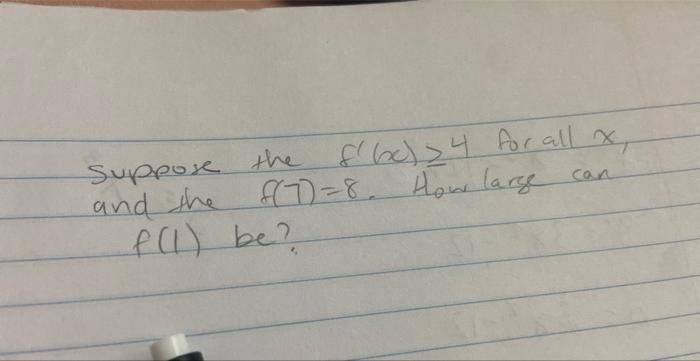 suppose the f'(x) ≥ 4 for all x,
and the f(7)=8. How large can
f(1) be?